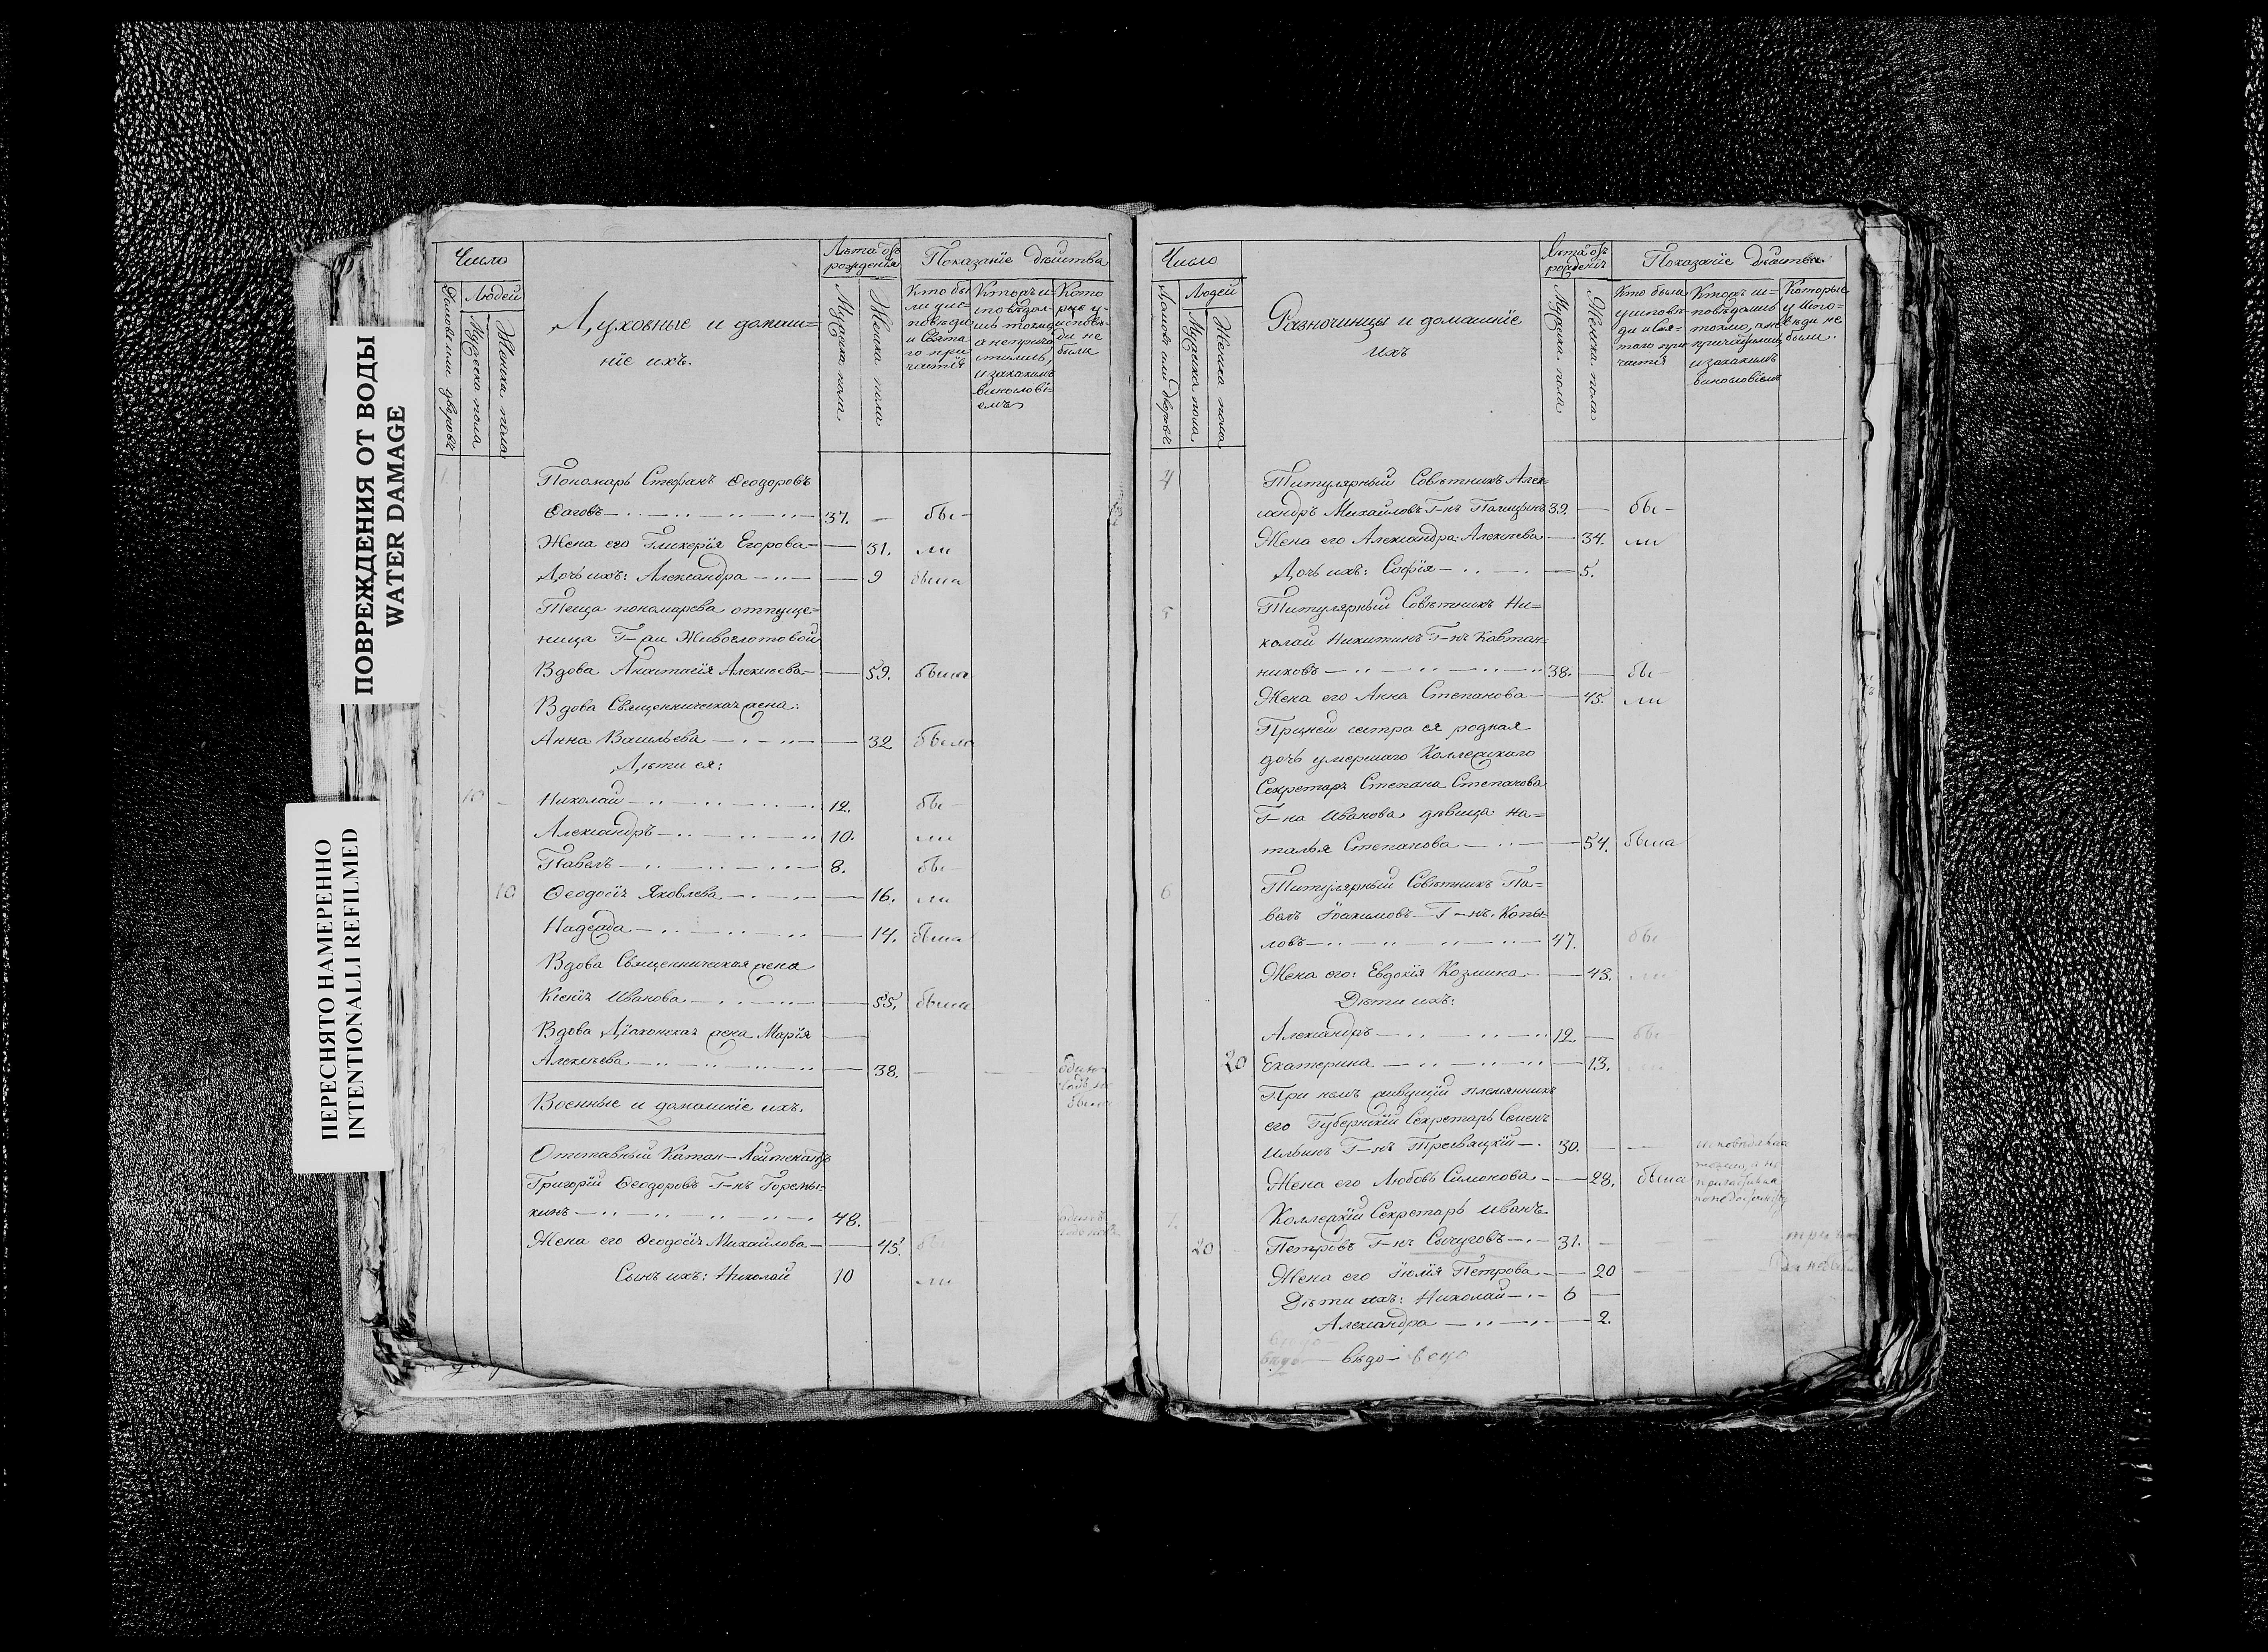 ПОВРЕЖДЕНИЯ ОТ ВОДЫ
WATER DAMAGE
ПЕРЕСНЯТО НАМЕРЕННО
INTENTIONALLI REFILMED
Число
Людей
Домовъ или дворовъ
Мужеска пола
Женска пола
Духовные и домаш=
нiе ихъ.
Лѣта отъ
рожденiя
Мужска пола
Женска пола
Показанiе дѣйства
Кто бы
ли у ис=
повѣди
и Свята
го при
частiя
Которы и=
сповѣдал=
ись токмо
а неприча
стились,
и закакимъ
винословi=
емъ
Кото
рые у=
исповѣ=
ди не
были
Пономарь Стефанъ Ѳеодоровъ
37. — бы —
Жена его Гликерiя Егорова — 31. ли
Дочь ихъ: Александра — 9 была
Теща пономарева отпуще=
ница Г-жи Живоглотовой
Вдова Анастасiя Алексѣева — 59. была
Вдова Священническая жена:
Анна Васильева — 32 была
Дѣти ея:
10 Николай — 12. бы —
Александръ — 10. ли
Павелъ — 8. бы —
10 Ѳеодосiя Яковлева — 16. ли
Надежда — 14. была
Вдова Священническая жена
Ксенiя Иванова — 55. была
Вдова Дiаконская жена Марiя
Алексѣева — 38.
Военные и домашнiе ихъ.
Отставный Капитан-Лейтенантъ
Григорiй Ѳеодоровъ Г-нъ Горемы=
кинъ — 48.
Жена его Ѳеодосiя Михайлова — 45. бы
Сынъ ихъ: Николай 10 ли
Число
Людей
Домовъ или дворовъ
Мужска пола
Женска пола
Разночинцы и домашнiе
ихъ
Лѣта отъ
рожденiя
Мужска пола
Женска пола
Показанiе дѣйства
Кто были
у исповѣ=
ди и Свя=
таго при=
частiя
Которы ис=
повѣдались
токмо, а не
причастились
и закакимъ
винословiемъ
Которые
у испо=
вѣди не
были.
4 Титулярный Совѣтникъ Алек=
сандръ Михайловъ Г-нъ 39. — бы —
Жена его Александра Алексѣева — 34. ли
Дочь ихъ: Софiя — 5.
5 Титулярный Совѣтникъ Ни=
колай Никитинъ Г-нъ Кавтан=
никовъ — 38. — бы —
Жена его Анна Степанова — 45. ли
При ней сестра ея родная
дочь умершаго Коллежскаго
Секретаря Степана Степанова
Г-на Иванова дѣвица На=
талья Степанова — 54. была
6 Титулярный Совѣтникъ Па=
велъ Iоакимовъ Г-нъ. Копы=
ловъ — 47. бы
Жена его: Евдокiя Козмина — 43. ли
Дѣти ихъ:
Александръ — 12. — бы
20 Екатерина — 13. ли
При немъ живущiй племянникъ
его Губернскiй Секретарь Семенъ
Ильинъ Г-нъ Тресвяцкiй — 30.
Жена его Любовь Симонова — 28. была
7. Коллежскiй Секретарь Иванъ
20 Петровъ Г-нъ Сычуговъ — 31.
Жена его Iюлiя Петрова — 20
Дѣти ихъ: Николай — 6 —
Александра — 2.
вѣдо —